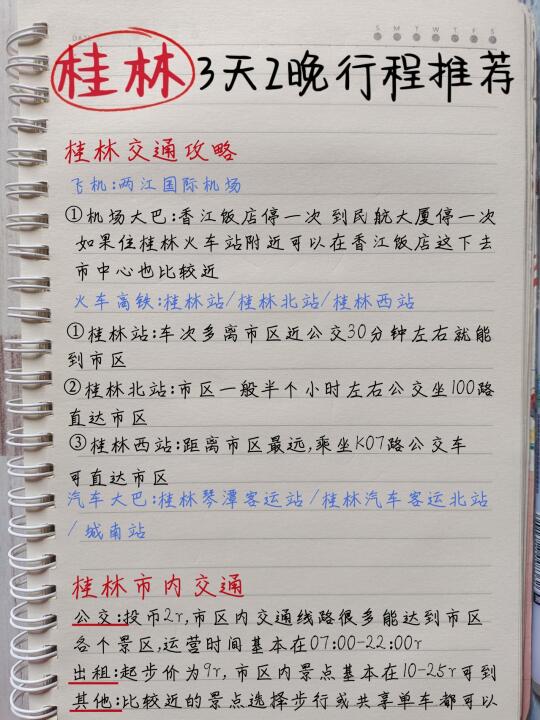 桂林3天2晚行程推荐
S M T W T F S
桂林交通攻略
飞机:两江国际机场
①机场大巴:香江饭店停一次 到民航大厦停一次
如果住桂林火车站附近可以在香江饭店这下去
市中心也比较近
火车高铁:桂林站/桂林北站/桂林西站
①桂林站:车次多离市区近公交30分钟左右就能
到市区
②桂林北站:市区一般半个小时左右公交坐100路
直达市区
③桂林西站:距离市区最远,乘坐K07路公交车
可直达市区
汽车大巴:桂林琴潭客运站/桂林汽车客运北站
/城南站
桂林市内交通
公交:投币2r,市区内交通线路很多能达到市区
各个景区,运营时间基本在07:00-22:00r
出租:起步价为9r,市区内景点基本在10-25r可到
其他:比较近的景点选择步行或共享单车都可以